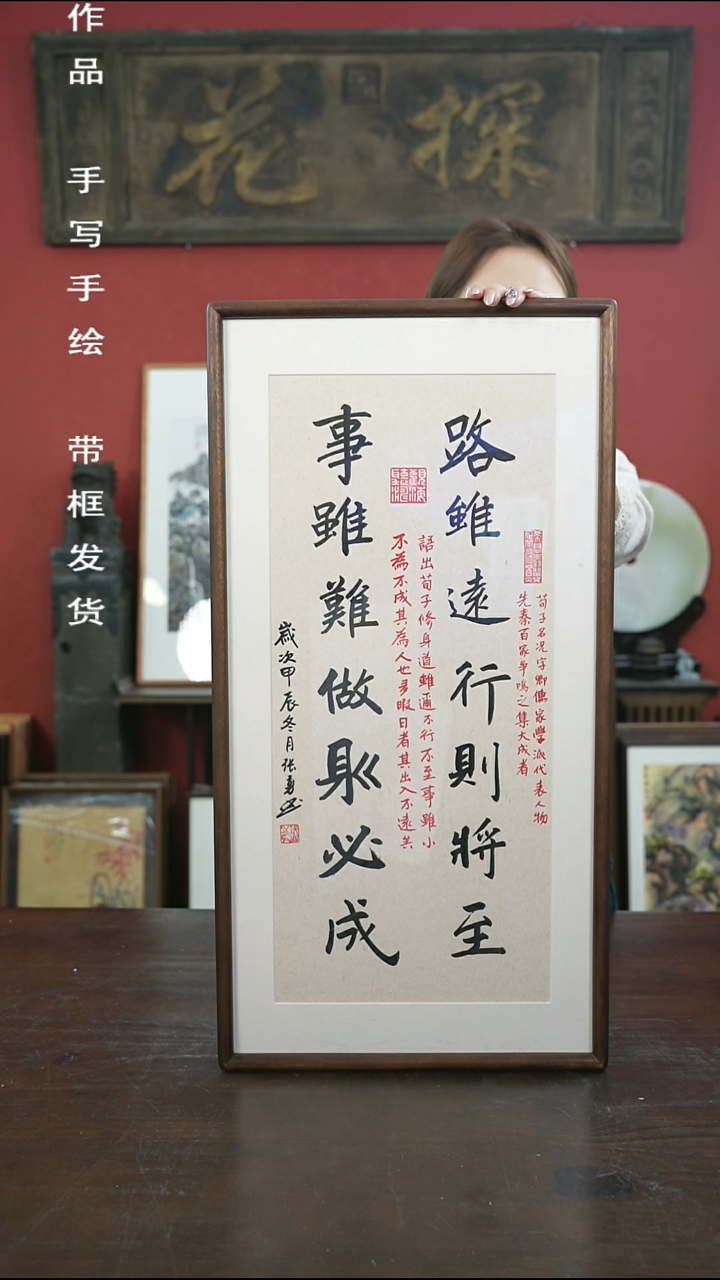 作品 手写手绘 带框发货
探花
路雖遠行則將至
荀子名况字卿儒家學派代表人物
先秦百家爭鳴之集大成者
事雖難做則必成
語出荀子修身道雖邇不行不至事雖小
不為不成其為人也多暇日者其出入不遠矣
歲次甲辰冬月张勇書